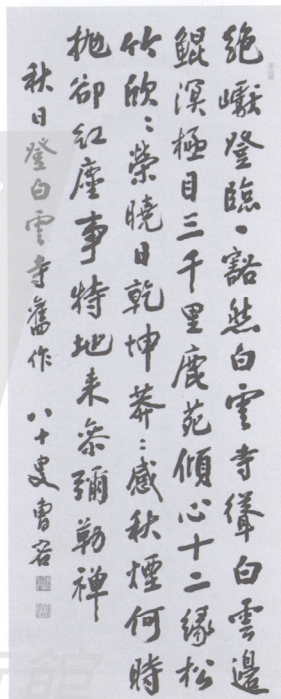 絕巘登臨一豁然白雲寺聳白雲邊
鯤溟極目三千里鹿苑傾心十二緣松
竹欣〻榮曉日乾坤莽〻感秋煙何時
拋卻紅塵事特地来參彌勒禅
秋日登白雲寺舊作 八十叟曹容